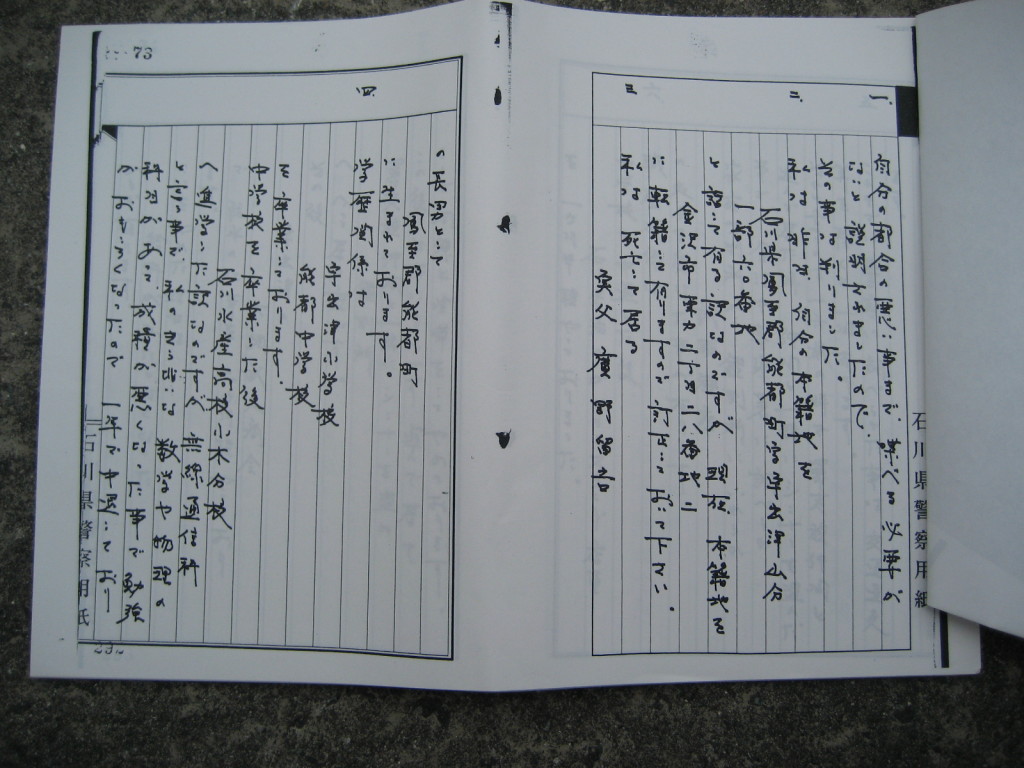 一、
自分の都合の悪い事まで述べる必要が
ないと説明されましたので、
その事は判りました。
二、
私は昨日、自分の本籍地を
石川県鳳至郡能都町字宇出津山分
一部六番地
と話して有る訳なのですが、現在、本籍地を
金沢市
に転籍して有りますので訂正しておいて下さい。
三
私は死亡して居る
実父 廣野留吉
の長男として
鳳至郡能都町
に生まれております。
四、
学歴関係は
宇出津小学校
能都中学校
を卒業しております。
中学校を卒業した後
石川水産高校小木分校
へ進学した訳なのですが、無線通信科
と言う事で、私のきらいな数学や物理の
科目があって成績が悪くなった事で勉強
がおもしろくなったので 1年で中退しており
石川県警察用紙
石川県警察用紙
73
292